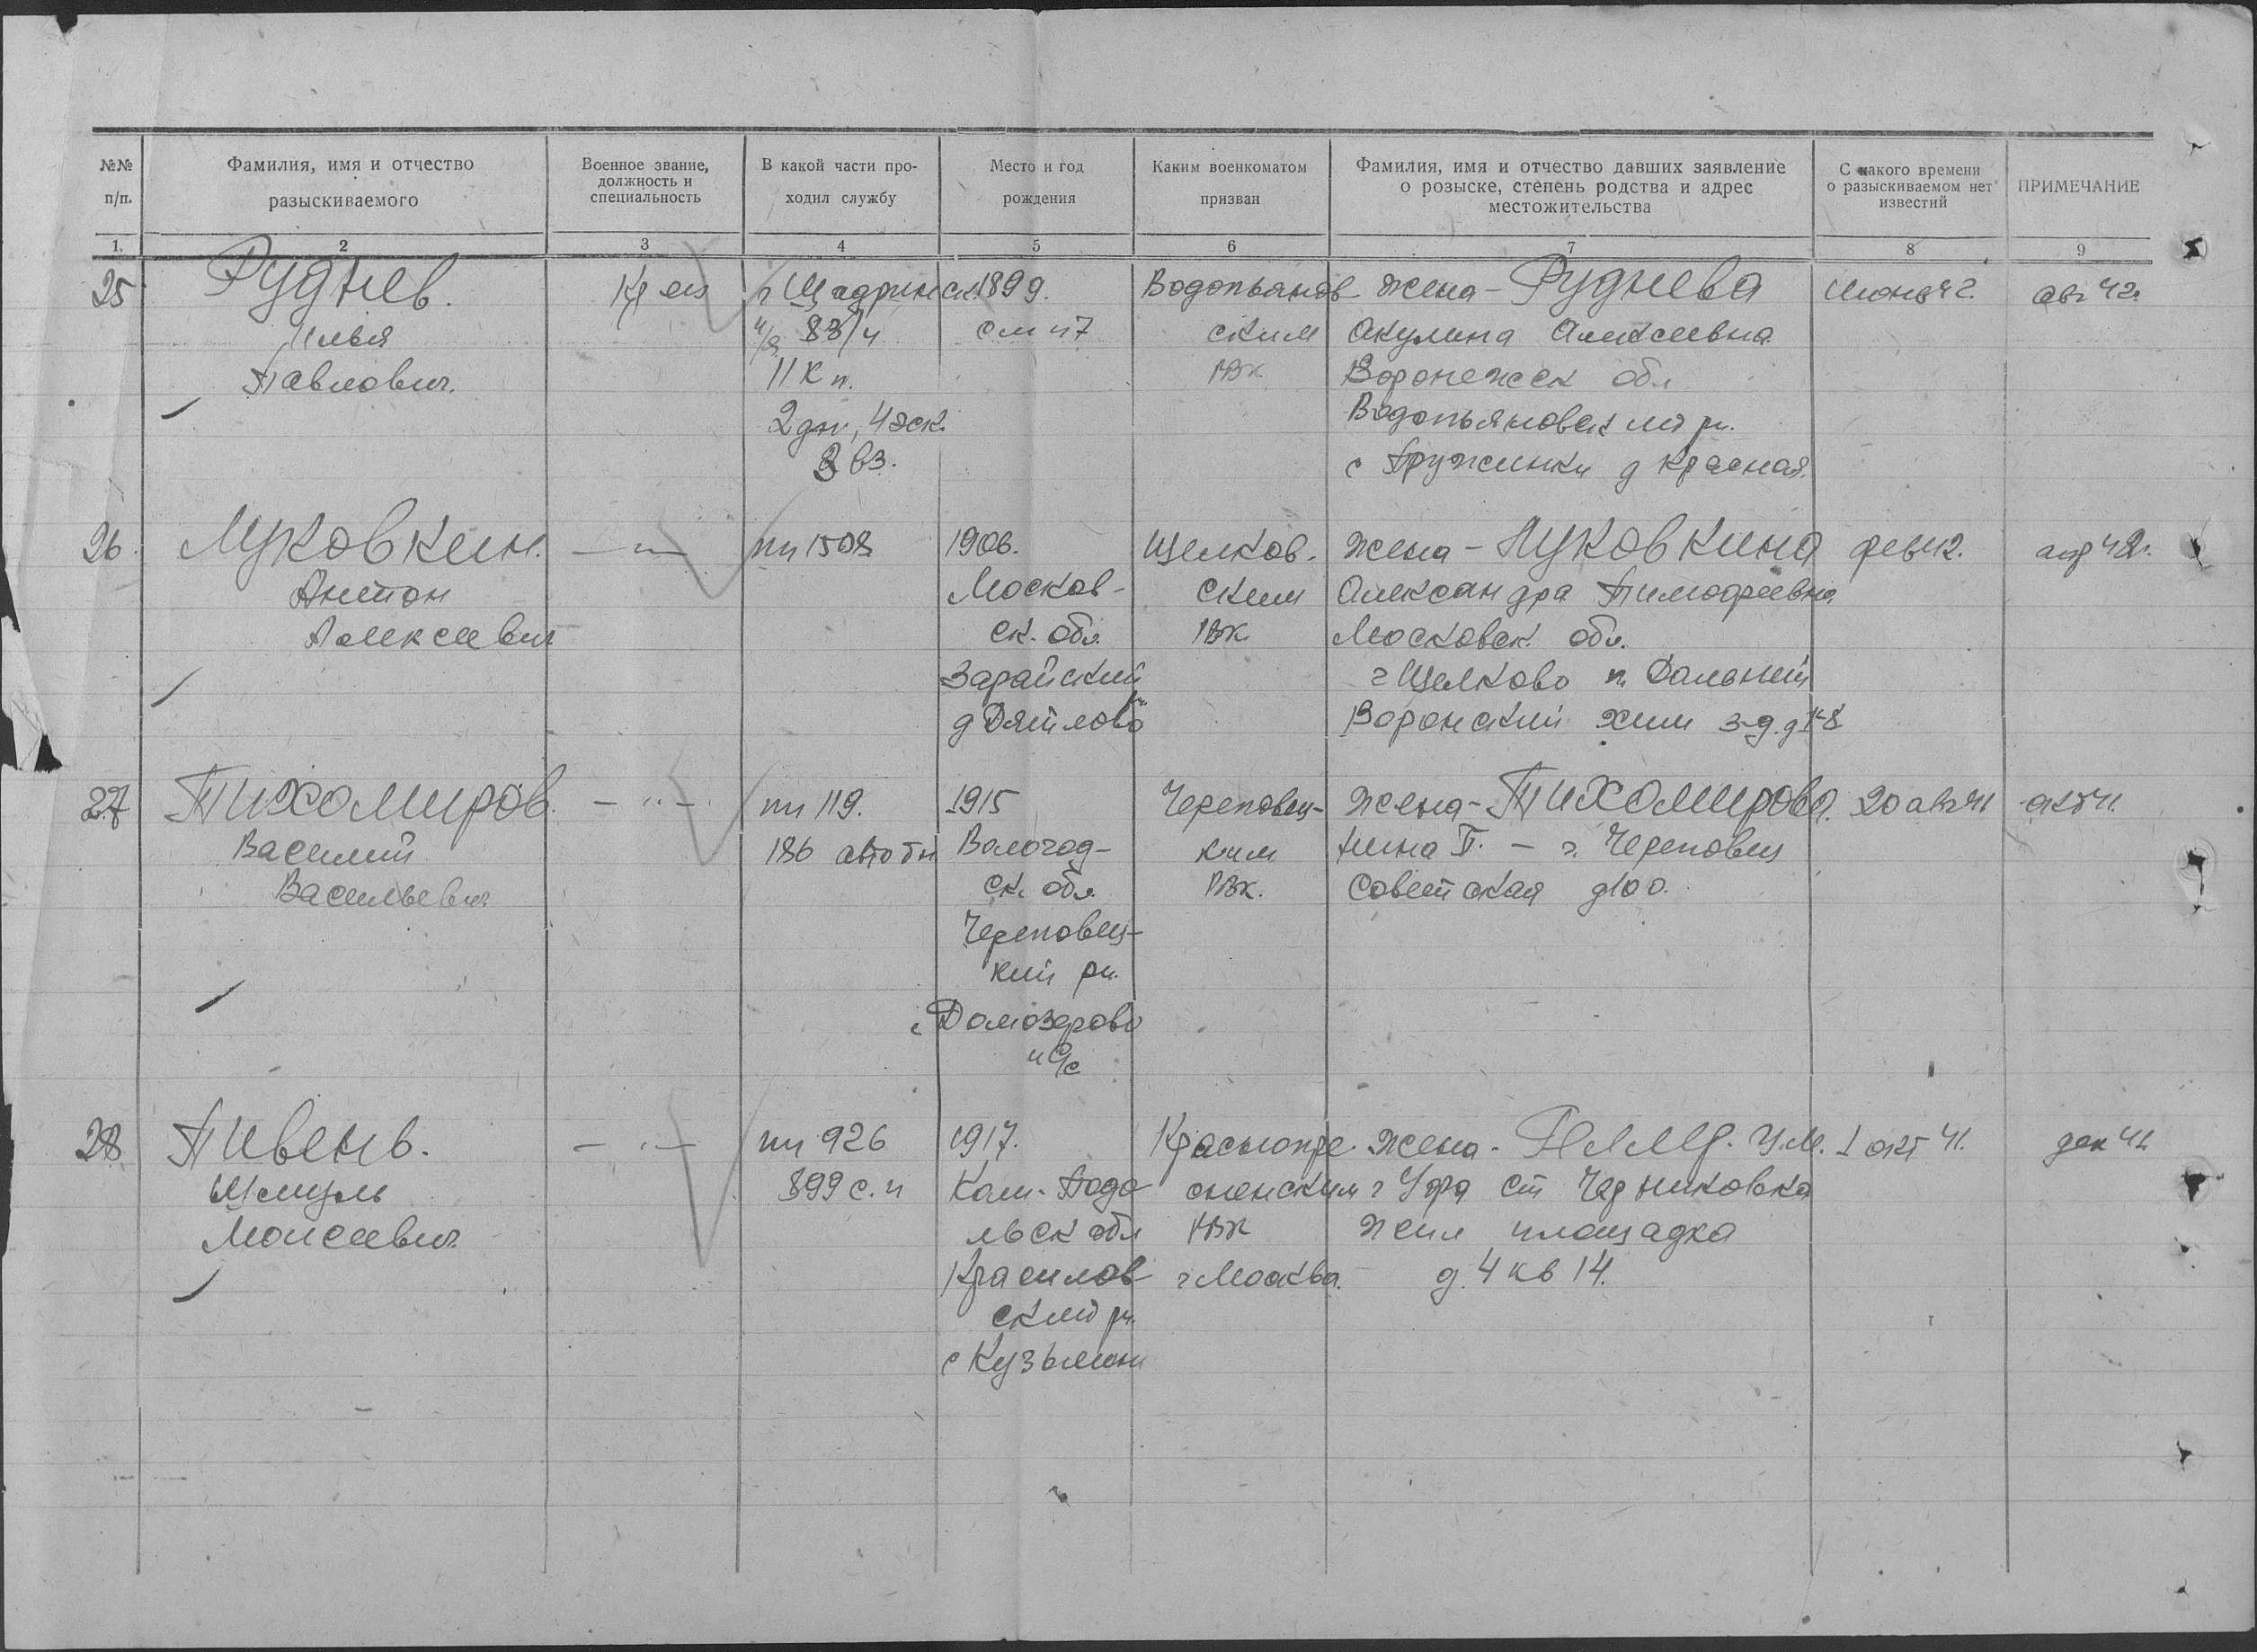 №№ п/п.
Фамилия, имя и отчество разыскиваемого
Военное звание, должность и специальность
В какой части проходил службу
Место и год рождения
Каким военкоматом призван
Фамилия, имя и отчество давших заявление о розыске, степень родства и адрес местожительства
С какого времени о разыскиваемом нет известий
ПРИМЕЧАНИЕ
1. 2 3 4 5 6 7 8 9
25
Руднев.
Илья
Павлович.
г Щадринск
п/я 83/4
11 К п.
2 дн, 4 эск.
3 вз.
1899.
см п 7
Водопьянов-
ским
РВК
Жена - Руднева
Акулина Алексеевна
Воронежск обл
Водопьяновский рн.
с Пружинки д Красная.
Июнь 42.
авг 42.
26.
Луковкин.
Антон
Алексеевич
— " —
пп 1508
1906.
Москов-
ск. обл.
Зарайский
рн
д Дятлово
Щелков.
ским
РВК.
Жена - Луковкина
Александра Тимофеевна
Московск. обл.
г Щелково п. Дальний
Воронский хим з-д. д 1-8
фев 42.
апр 42г.
27
Тихомиров.
Василий
Васильевич
— " —
пп 119.
186 авто бн
1915
Вологод-
ск. обл.
Череповец-
кий рн.
с Домозерово
п с/с
Череповец-
ким
РВК.
Жена - Тихомирова.
Нина П. - г. Череповец
Советская д 100.
20 авг 41
окт 41.
28
Пивень.
Шмуль
Моисеевич
— " —
пп 926
899 с.п
1917.
Кам-Подо
льск обл
Красилов
ский рн.
с Кузьмин
Краснопре-
сненским
РВК
г Москва.
Жена - У.М.
г Уфа ст Черниковка
жил площадка
д. 4 кв 14.
1 окт 41.
дек 41